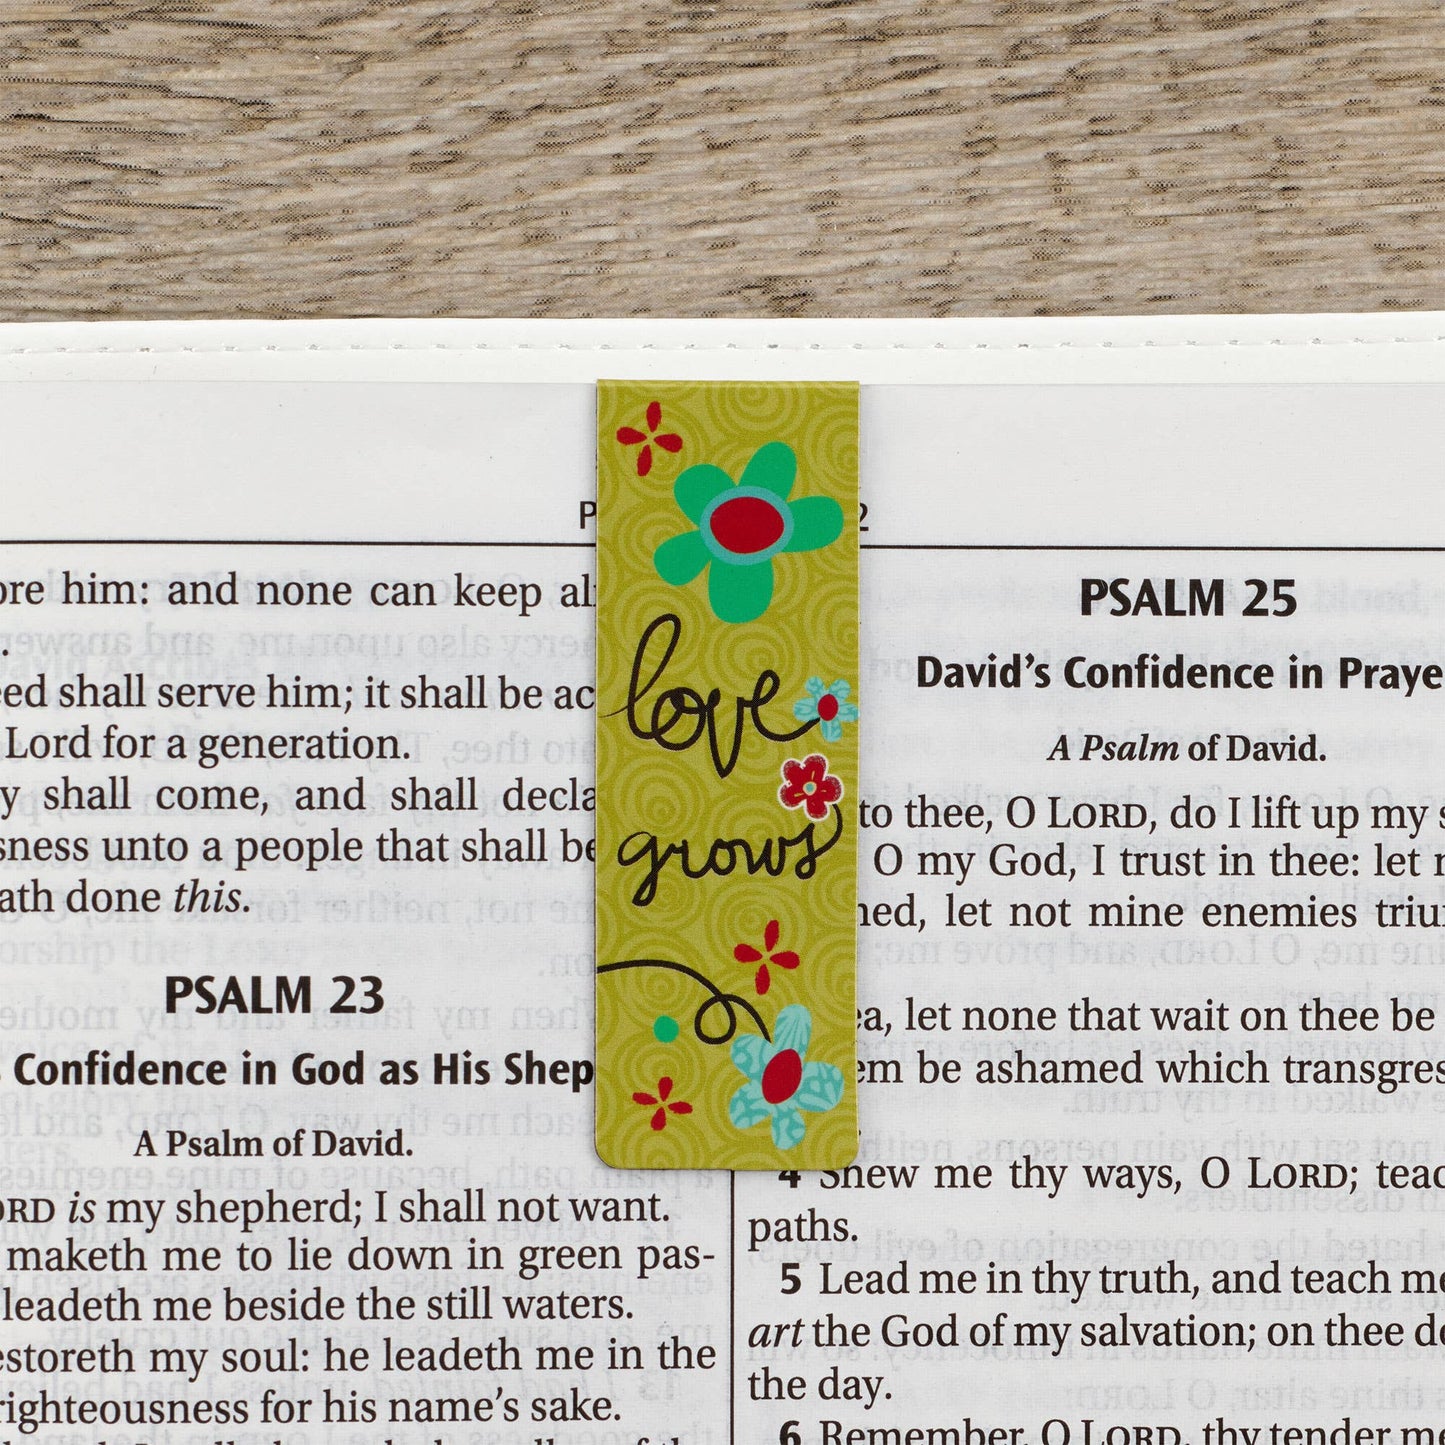 ore him: and none can keep
.
eed shall serve him; it shall be ac
Lord for a generation.
y shall come, and shall decla
sness unto a people that shall be
ath done this.
PSALM 23
Confidence in God as His Shep
A Psalm of David.
ORD is my shepherd; I shall not want.
maketh me to lie down in green pas-
leadeth me beside the still waters.
estoreth my soul: he leadeth me in the
righteousness for his name's sake.
love
grows
PSALM 25
David's Confidence in Praye
A Psalm of David.
to thee, O LORD, do I lift up my s
O my God, I trust in thee: let
ned, let not mine enemies triu
ea, let none that wait on thee be
em be ashamed which transgres
4 Shew me thy ways, O LORD; teac
paths.
5 Lead me in thy truth, and teach me
art the God of my salvation; on thee do
the day.
6 Remember, O LORD, thy tender me